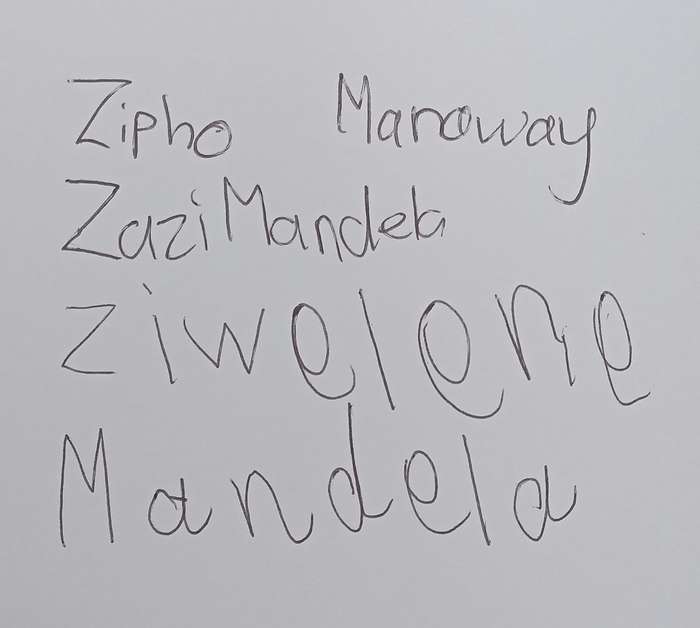 Zipho Manoway
Zazi Mandela
Ziwelene
Mandela